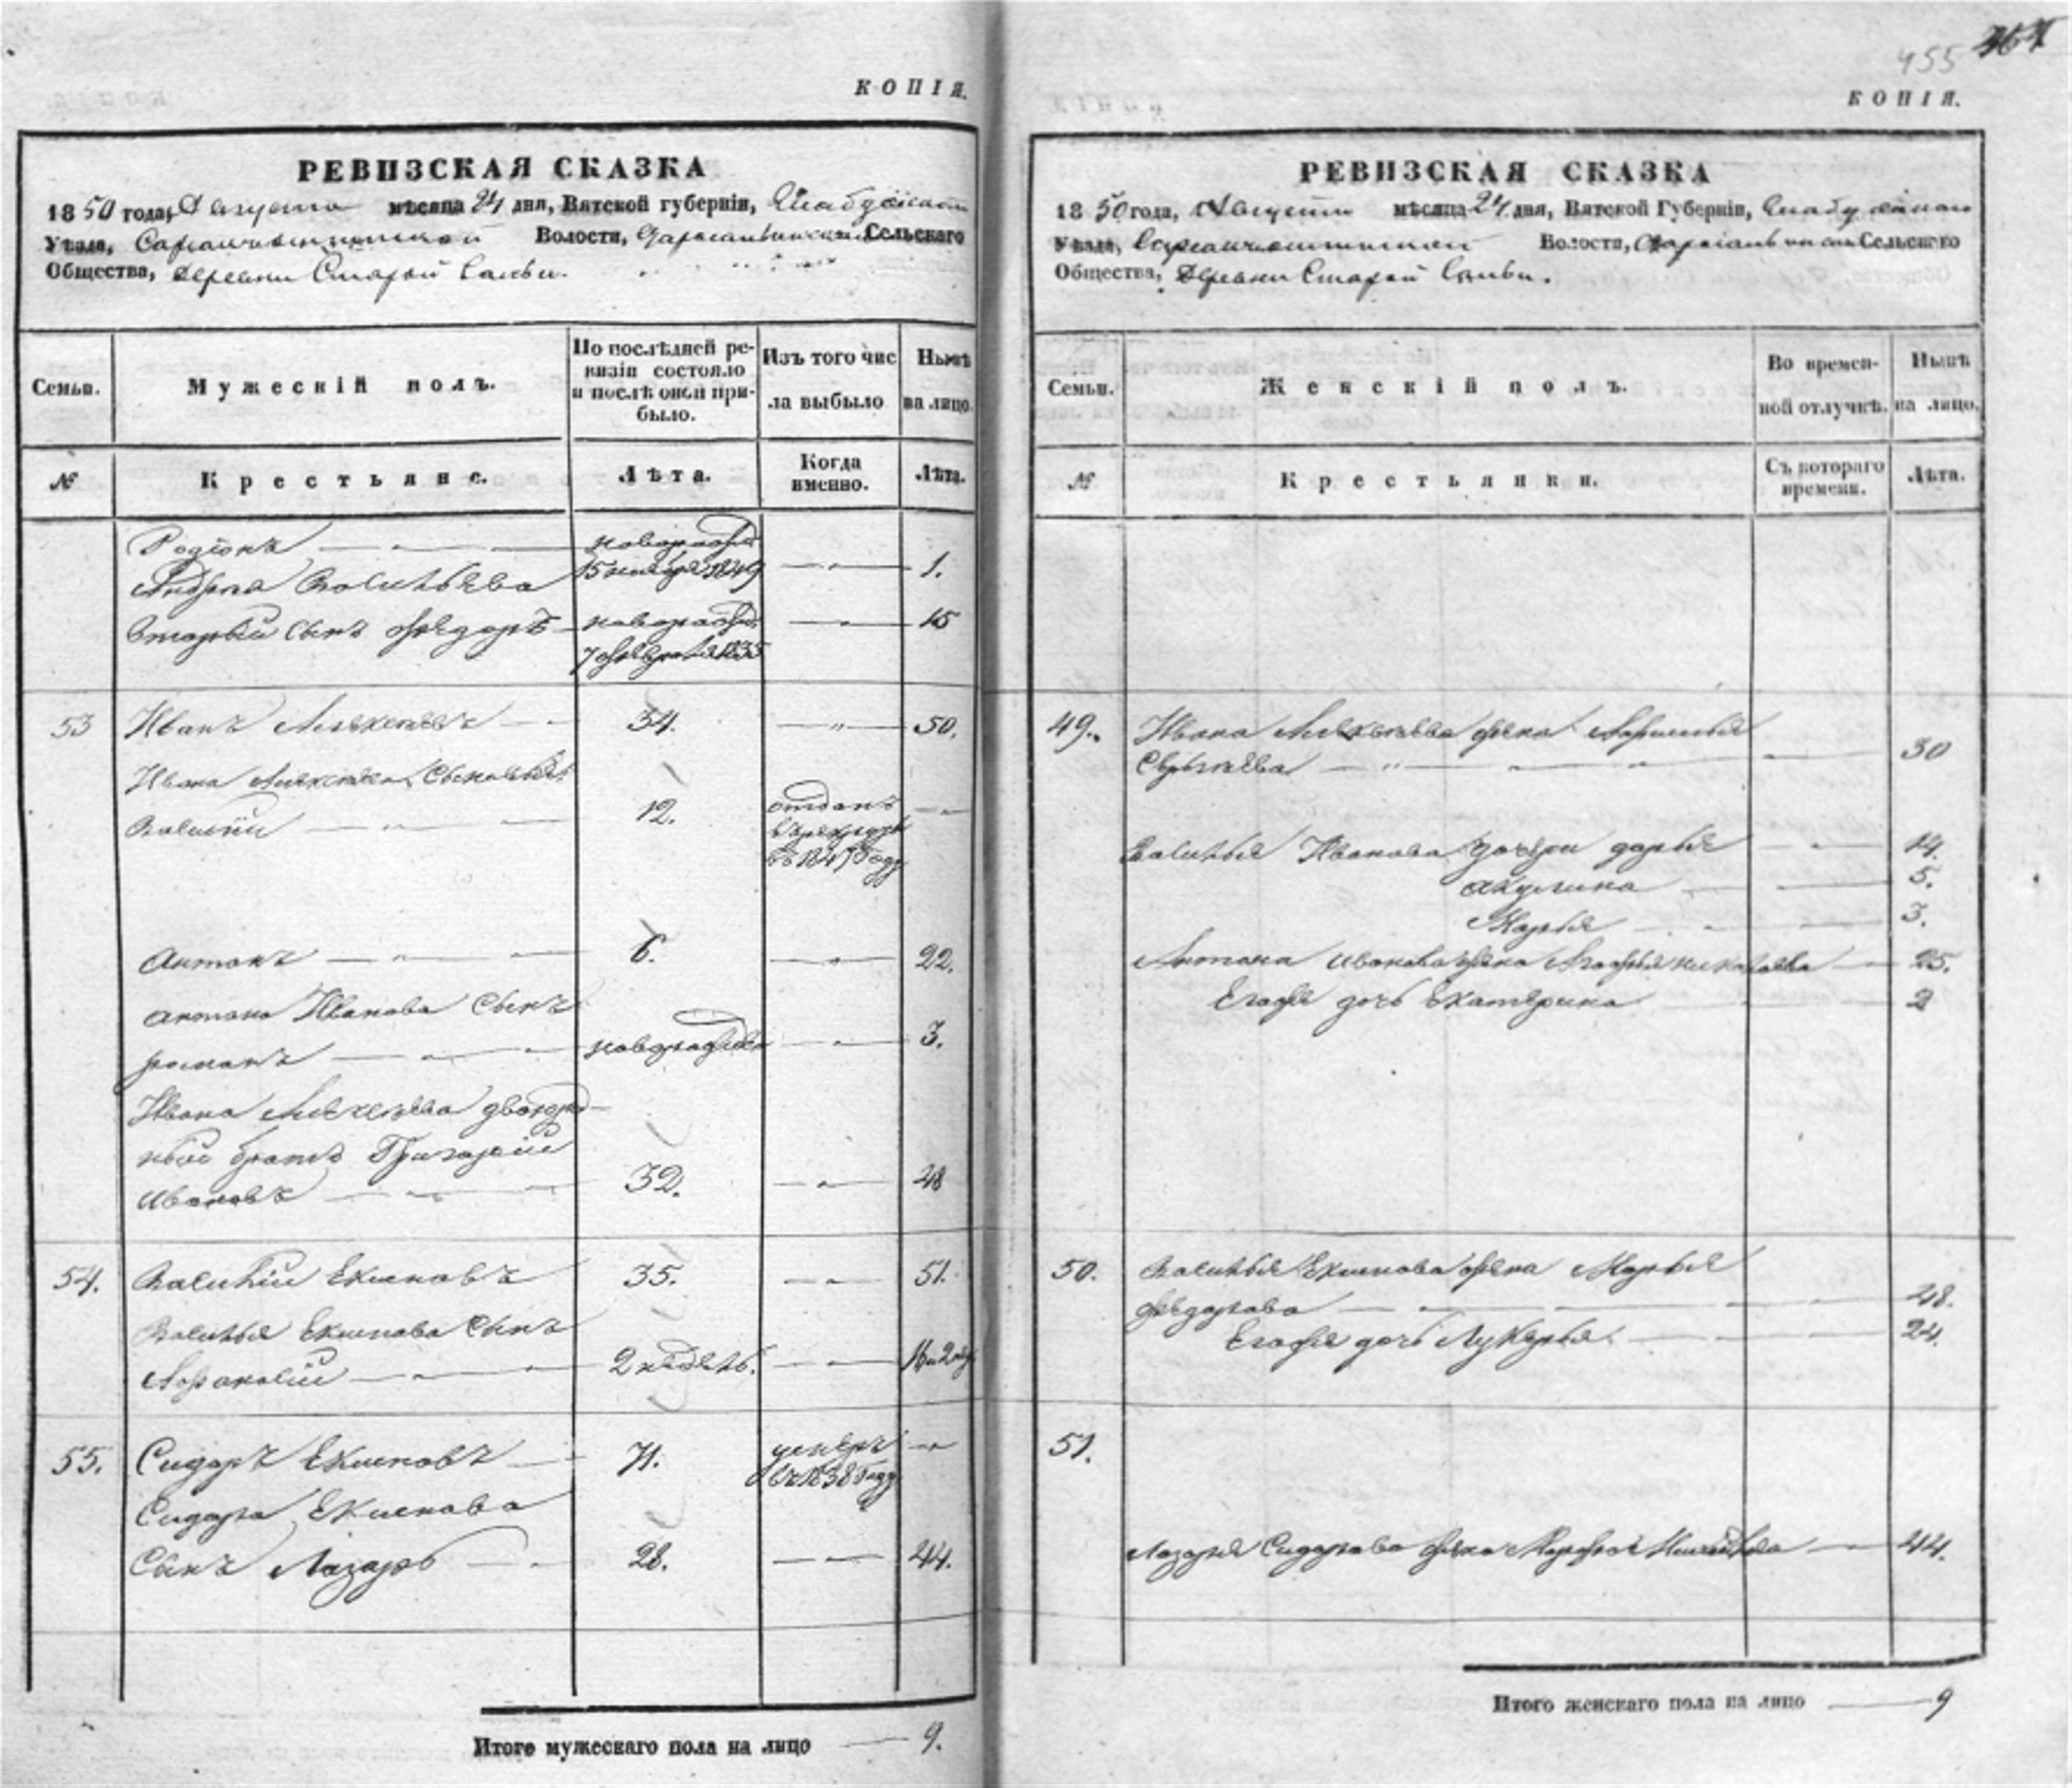 КОПІЯ.
РЕВИЗСКАЯ СКАЗКА
1850 года, Августа мѣсяца 24 дня, Вятской губерніи,
Уѣзда, Волости, Сельскаго
Общества, деревни Старой Сальи.
Семьи.
Мужескій полъ.
По послѣдней ре-
визіи состояло
и послѣ оной при-
было.
Изъ того чис
ла выбыло
Нынѣ
на лицо.
№
Крестьяне.
Лѣта.
Когда
именно.
Лѣта.
Родіонъ новорожд.
15 1849 1.
Андрея Васильева
Вторый сынъ Федоръ новорожд. 15
7 февраля 1835
53 Иванъ Алексѣевъ 34. 50.
Ивана Алексѣева сыновья
Василій 12. отданъ
въ рекруты
въ году
Антонъ 6. 22.
Антона Иванова сынъ
Романъ новорожден 3.
Ивана Алексѣева двоюрод-
ный братъ Григорій
Ивановъ 32. 48
54. Василій Екимовъ 35. 51.
Василья Екимова сынъ
Афанасій 2 недель. 16 и 2 нед
55. Сидоръ Екимовъ 71. умеръ
въ 1838 году
Сидора Екимова
сынъ Лазарь 28. 44.
Итого мужескаго пола на лицо 9.
455
КОПІЯ.
РЕВИЗСКАЯ СКАЗКА
1850 года, Августа мѣсяца 24 дня, Вятской Губерніи,
Уѣзда, Волости, Сельскаго
Общества, деревни Старой Сальи.
Семьи.
Женскій полъ.
Во времен-
ной отлучкѣ.
Нынѣ
на лицо.
№
Крестьянки.
Съ котораго
времени.
Лѣта.
49. Ивана Алексѣева жена
30
Василья Иванова дочери Дарья 14.
Акулина 5.
Марья 3.
Антона Иванова жена 25.
Егоже дочь Екатерина 2
50. Василья Екимова жена Марья
Федорова 48.
Егоже дочь Лукерья 24.
51.
Лазаря Сидорова жена 44.
Итого женскаго пола на лицо 9